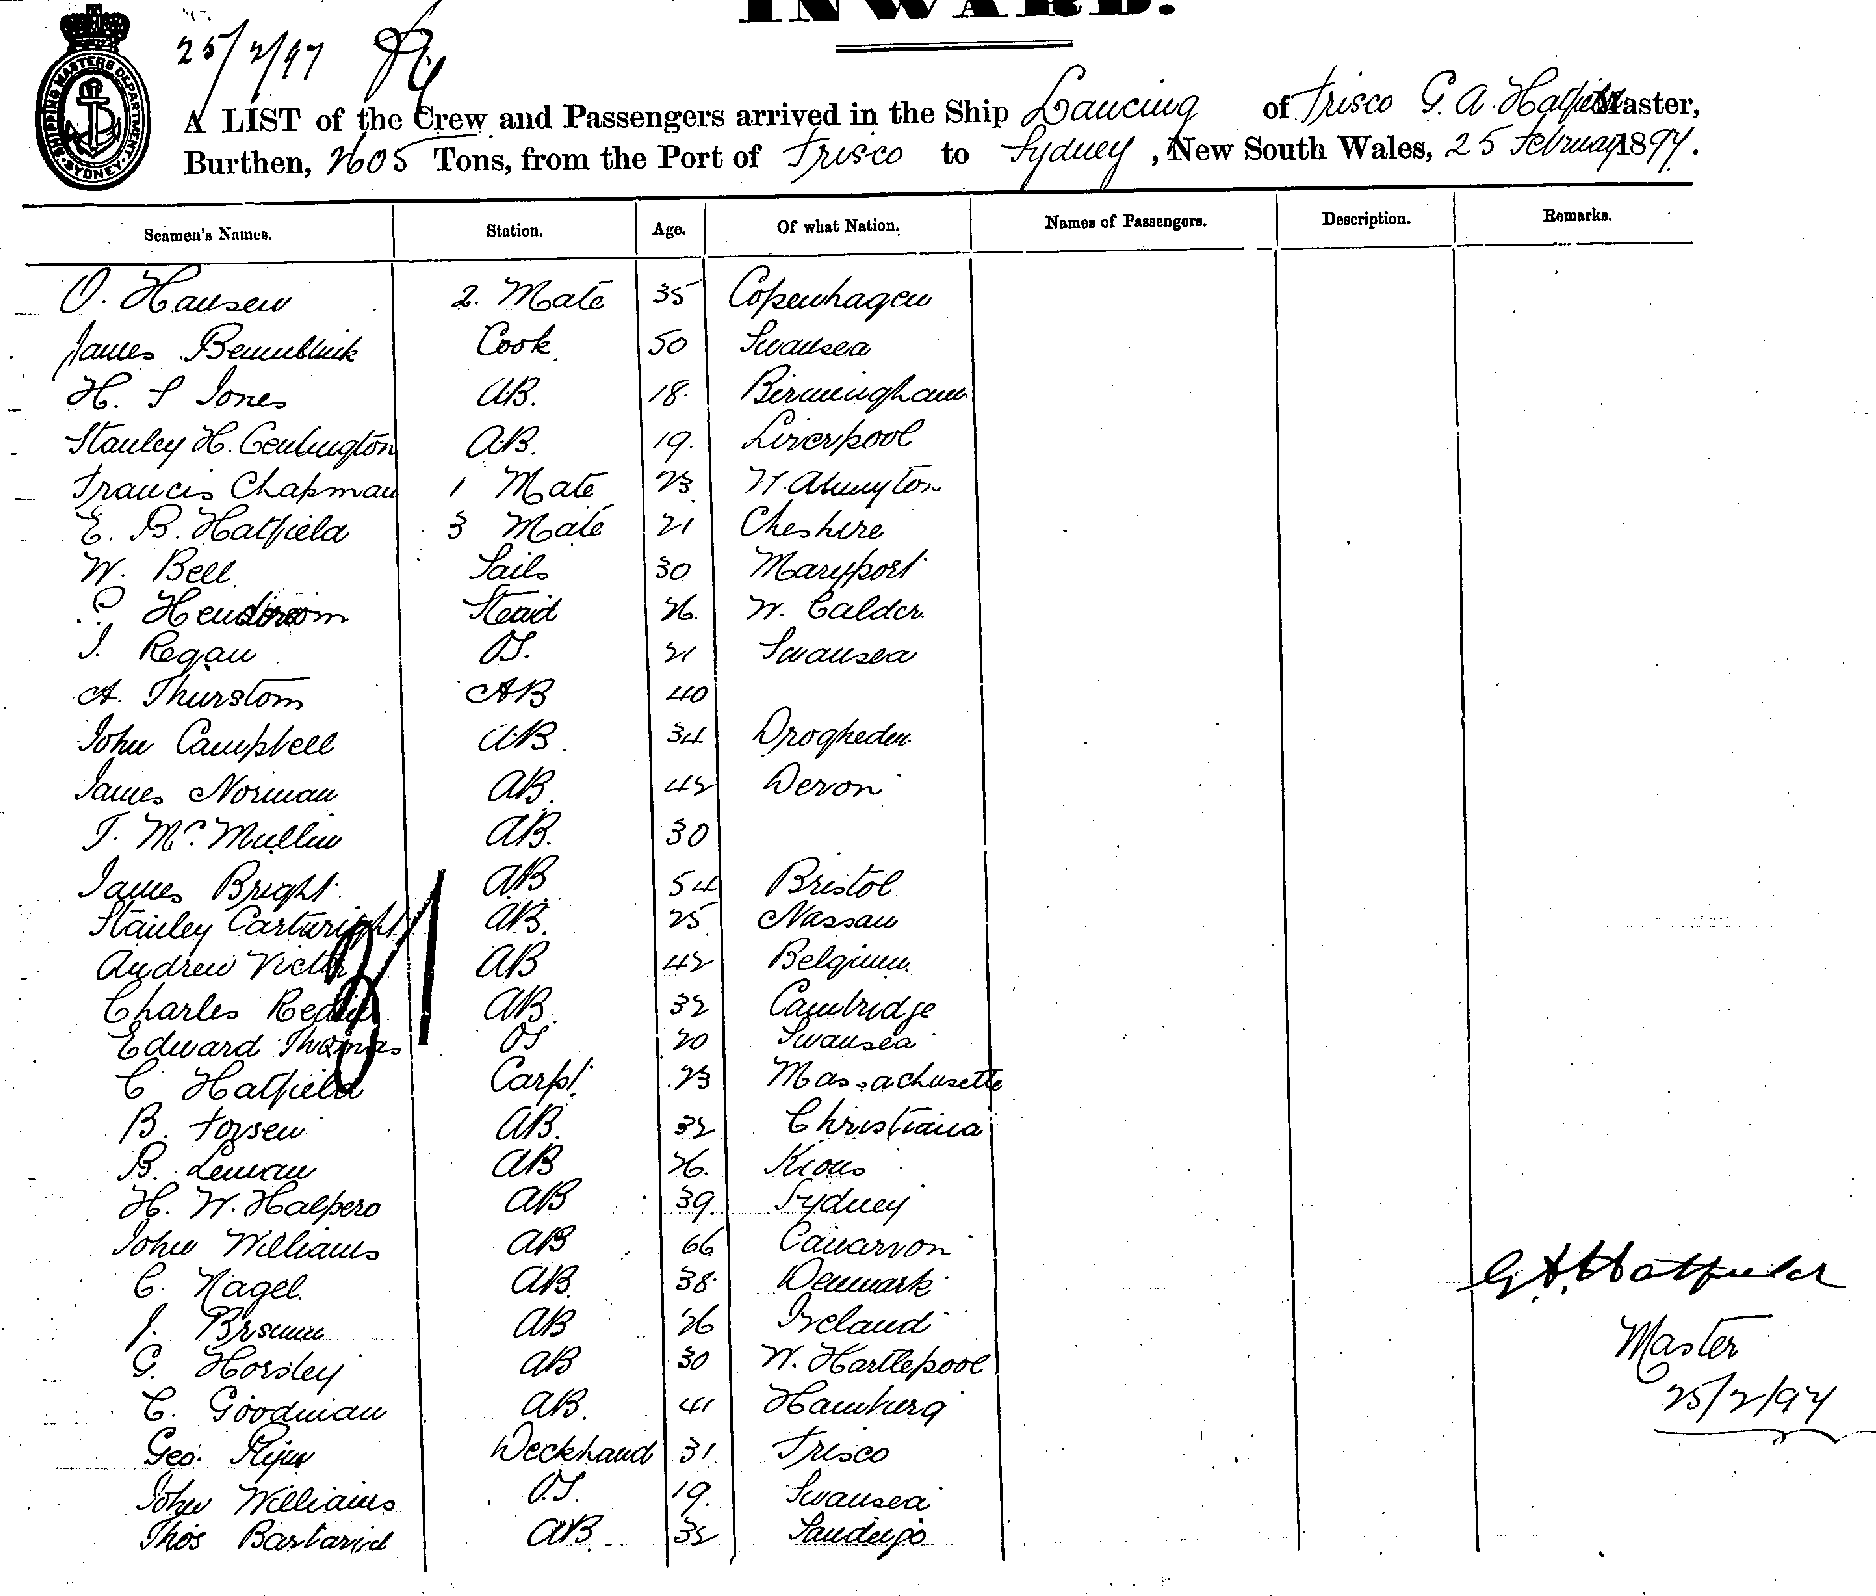 INWARD.
25/2/97
SHIPPING MASTERS DEPARTMENT SYDNEY
A LIST of the Crew and Passengers arrived in the Ship Lancing of Frisco G. A. Hatfield Master,
Burthen, 2605 Tons, from the Port of Frisco to Sydney, New South Wales, 25 February 1897.
Seamen's Names. Station. Age. Of what Nation. Names of Passengers. Description. Remarks.
O. Hansen 2. Mate 35 Copenhagen
James Cook 50 Swansea
H. S Jones AB. 18. Birmingham
Stanley H. AB. 19. Liverpool
Francis Chapman 1 Mate 23
E. B. Hatfield 3 Mate 21 Cheshire
W. Bell Sails 30 Maryport
Stead 26. W. Calder
J. Regan OS. 21 Swansea
A. Thurstom AB 40
John Campbell AB. 34
James Norman AB. 42 Devon
T. Mc. Mullin AB. 30
James Bright AB 54 Bristol
Stanley Cartwright AB. 25 Nassau
Andrew Victor AB 42 Belgium
Charles AB. 32 Cambridge
31
Edward Thomas OS 20 Swansea
C Hatfield Carpt. 23 Massachusette
B. Forsen AB. 32 Christiana
B. Leman AB 26.
H. W. Halpero AB 39. Sydney
John Williams AB 66
C. Nagel AB. 38. Denmark
J. AB 26 Ireland
G. Horsley AB 30 W. Hartlepool
C. Goodman AB. 41 Hamburg
Geo. Deckhand 31. Frisco
John Williams O.S. 19. Swansea
Thos AB. 32
G. A. Hatfield
Master
25/2/97